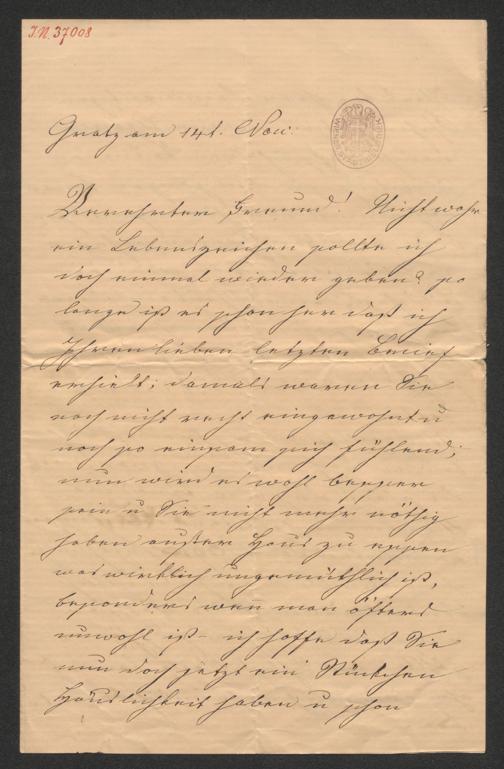 I.N. 37008
Gratz am 14t. Nov.
Verehrter Freund! Nicht wahr
ein Lebenszeichen sollte ich
doch einmal wieder geben? so
lange ist es schon her daß ich
Ihren lieben letzten Brief
erhielt; damals waren Sie
noch nicht recht eingewohnt u
noch so einsam sich fühlend;
nun wird es wohl besser
sein u Sie nicht mehr nöthig
haben außer Haus zu essen
was wirklich ungemüthlich ist,
besonders wen̄ man öfters
unwohl ist – ich hoffe daß Sie
nun doch jetzt ein Stückchen
Häuslichkeit haben u schon